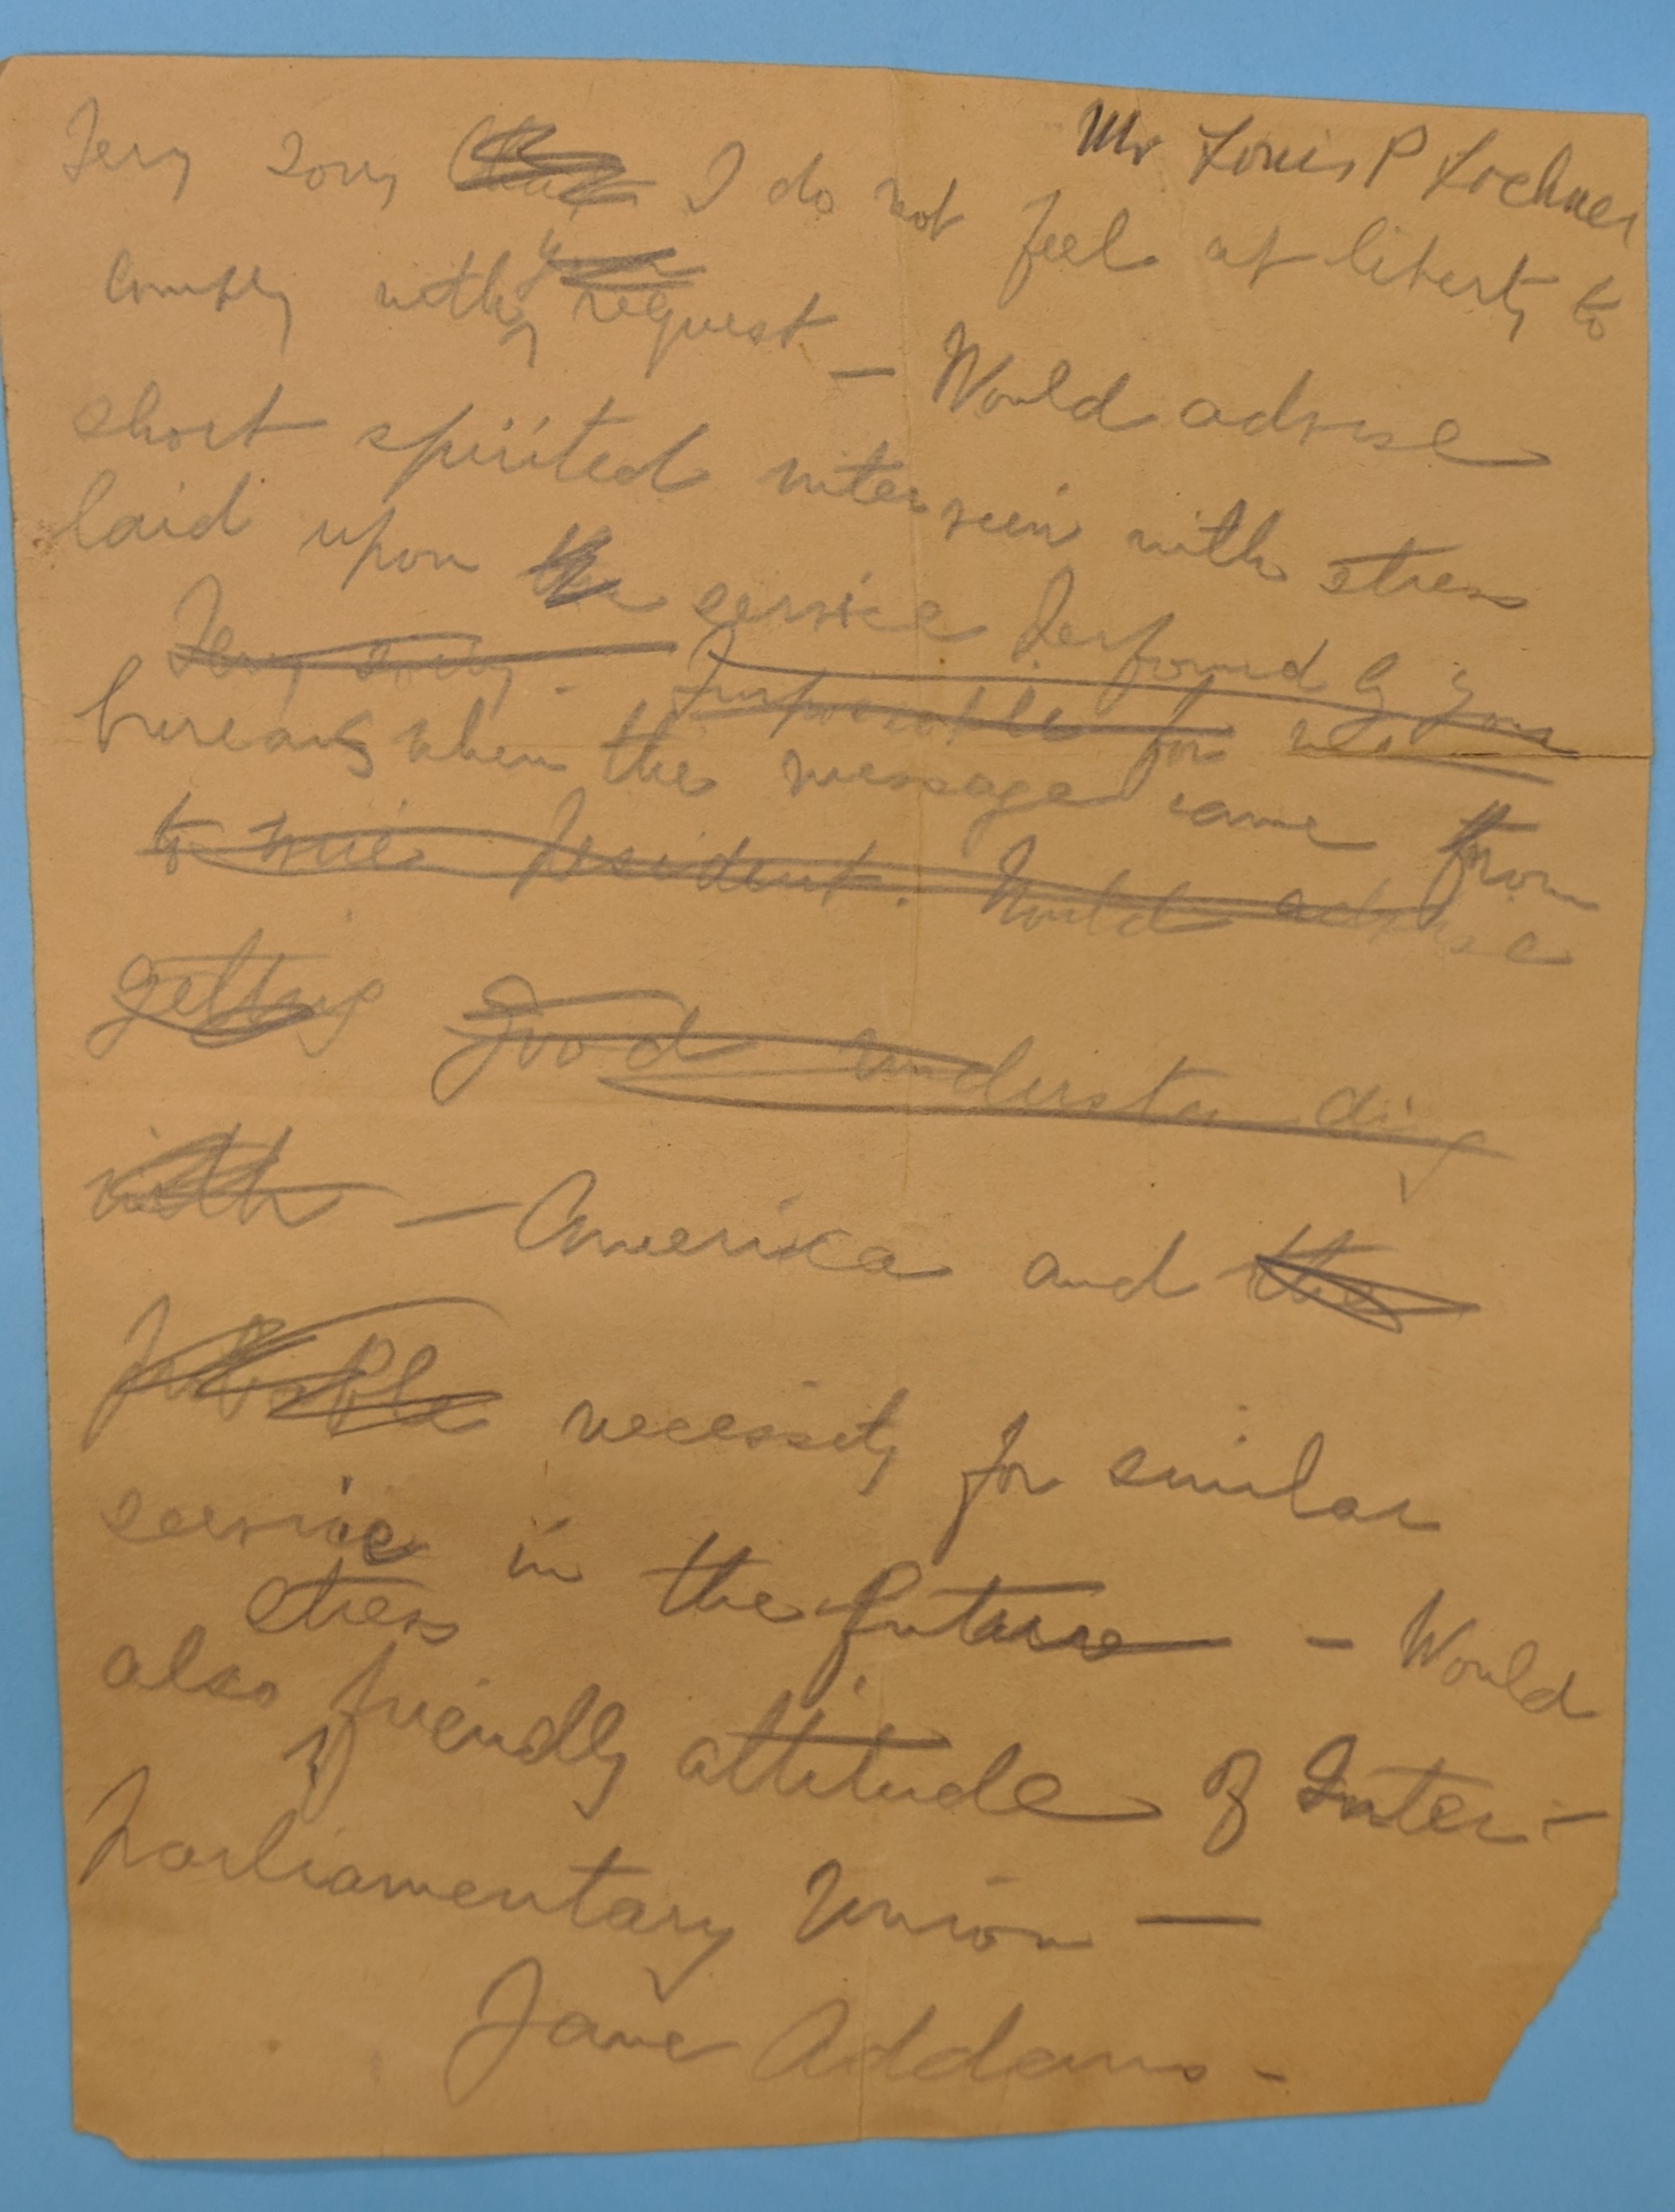 Mr Louis P Lochner
Very sorry I do not feel at liberty to
comply with your request — Would advise
short spirited interview with stress
laid upon the service performed by your
Very sorry. Impossible for me
bureau when the message came from
to wire President. Would advise
getting good understanding
with — America and the
probable necessity for similar
service in the future — Would
stress
also friendly attitude of Inter-
Parliamentary Union —
Jane Addams -